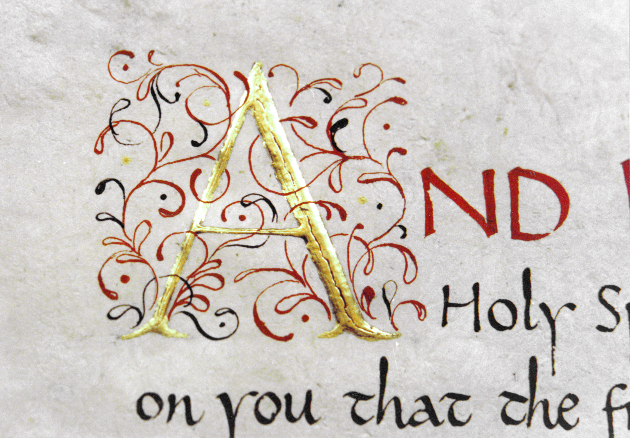 AND
Holy
on you that the